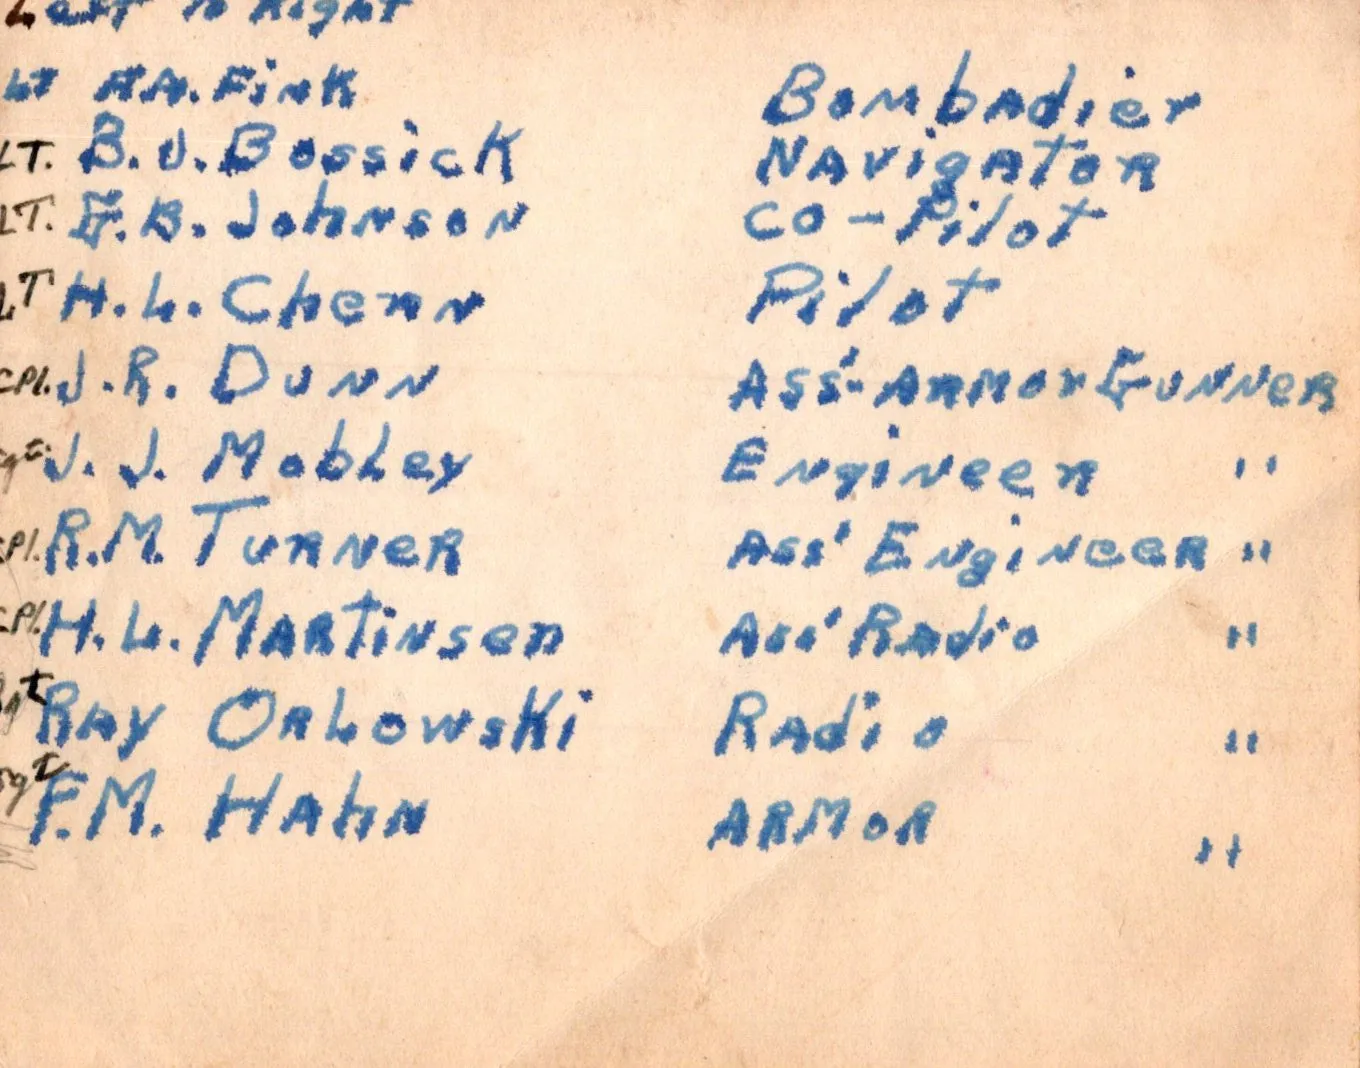 Left to Right
LT H.A. Fink Bombadier
LT. B.J. Bossick Navigator
LT. G.B. Johnson CO-Pilot
LT H.L. Chenn Pilot
CPl. J.R. Dunn Ass'-Armor Gunner
Sgt. J.J. Mobley Engineer "
CPl. R.M. Turner Ass' Engineer "
CPl. H.L. Martinsen Ass' Radio "
Sgt Ray Orlowski Radio "
Sgt F.M. Hahn ARMOR "